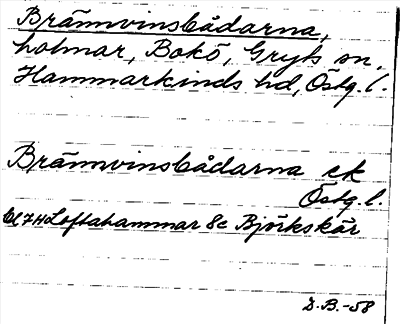 Brännvinsbådarna,
holmar, Bokö, Gryts sn,
Hammarkinds hd, Östg. l.
Brännvinsbådarna ek
Östg. l.
Loftahammar 8c Björkskär
D.B.-58